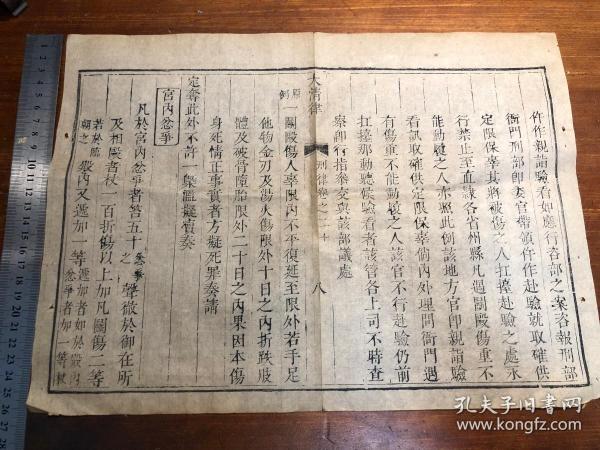 仵作親詣驗看如應行咨部之案咨報刑部
衙門刑部即委官帶領仵作赴驗就取確供
定限保辜其將被傷之人扛擡赴驗之處永
行禁止至直隸各省州縣凡遇鬬毆傷重不
能動履之人亦照此例該地方官即親詣驗
看訊取確供定限保辜倘內外理問衙門遇
有傷重不能動履之人該官不行赴驗仍前
扛擡那動聽候驗看者該管各上司不時查
察即行指叅交與該部議處
大清律
刑律卷之二十
八
原例
一鬬毆傷人辜限內不平復延至限外若手足
他物金刃及湯火傷限外十日之內折跌肢
體及破骨墮胎限外二十日之內果因本傷
身死情正事實者方擬死罪奏請
定奪此外不許一槩濫擬瀆奏
宮內忿爭
凡於宮內忿爭者笞五十忿爭之聲徹於御在所
及相毆者杖一百折傷以上加凡鬬傷二等
若於臨朝之殿內又遞加一等遞加者如於殿內忿爭者加一等
孔夫子旧书网
book.kongfz.com